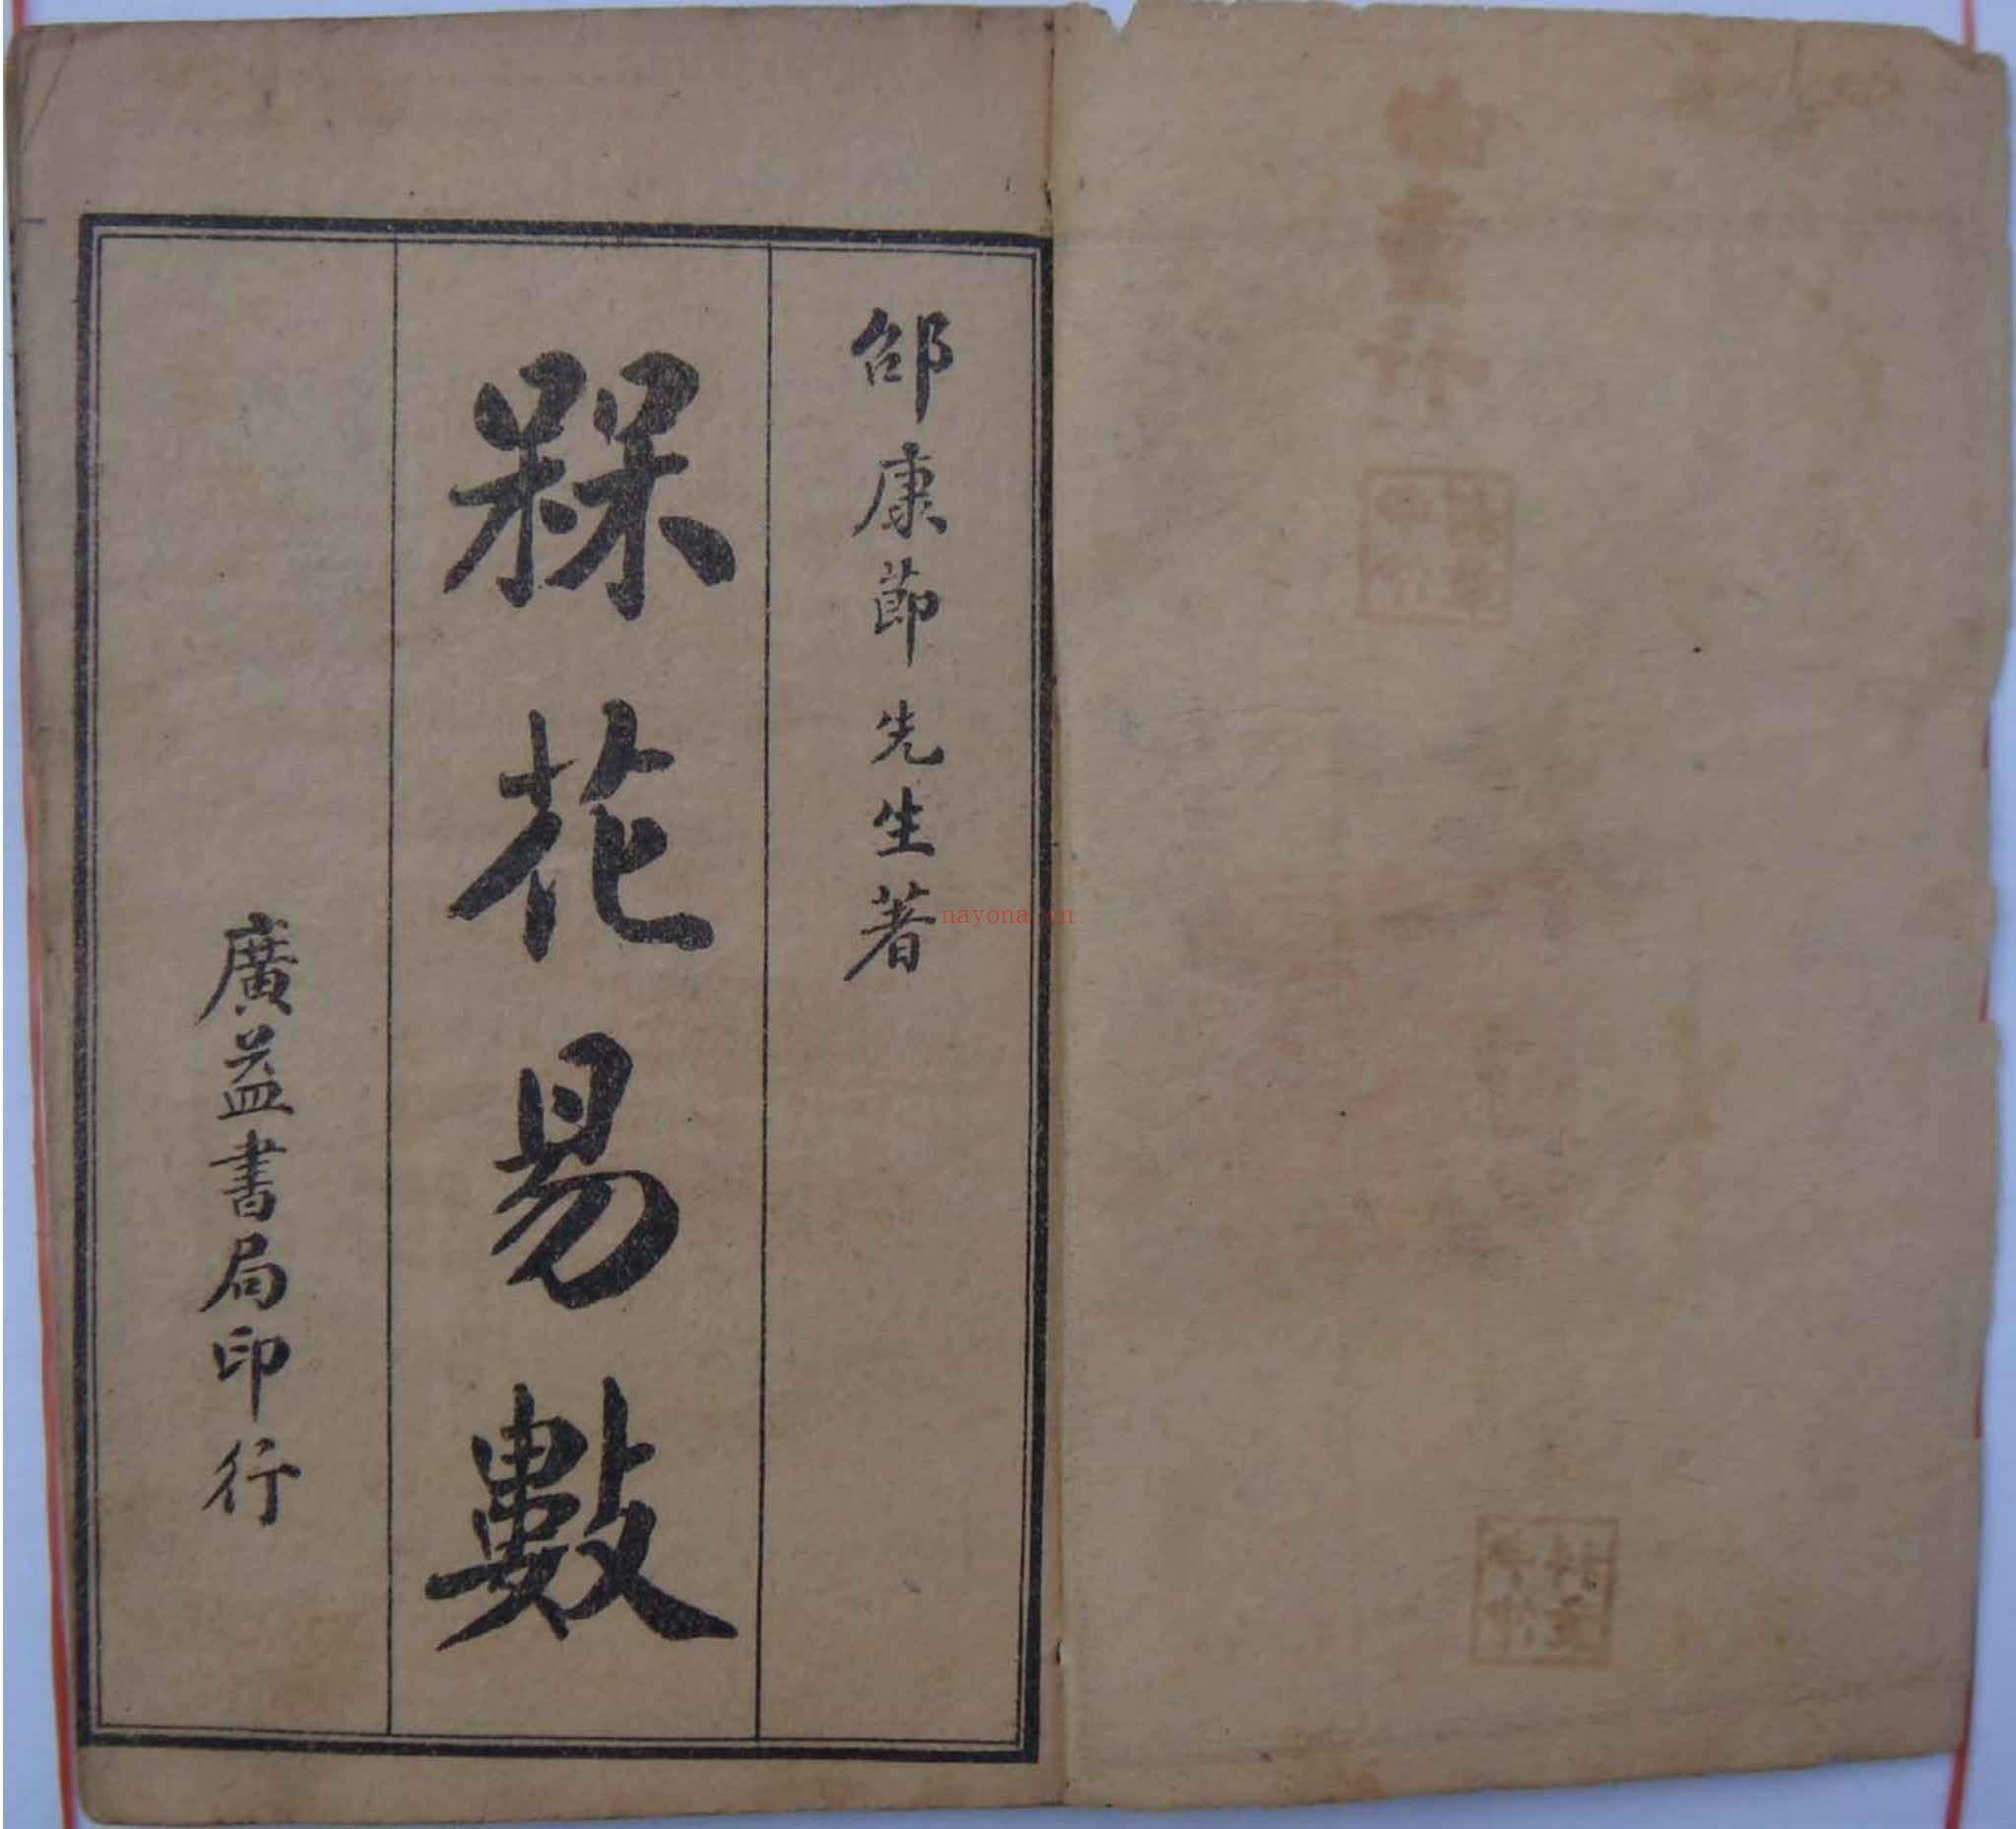 邵康節先生著
槑花易數
廣益書局印行
nayona.cn